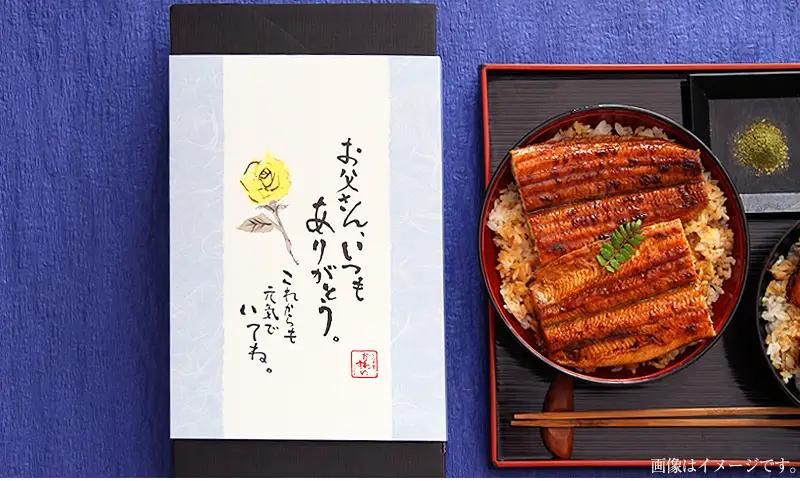 お父さん、いつも
ありがとう。
これからも
元気で
いてね。
画像はイメージです。